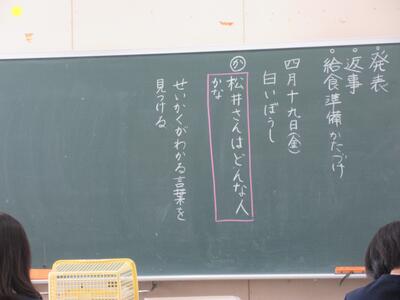 発表
返事
給食準備かたづけ
四月十九日(金)
白いぼうし
か 松井さんはどんな人
かな
せいかくがわかる言葉を
見つける